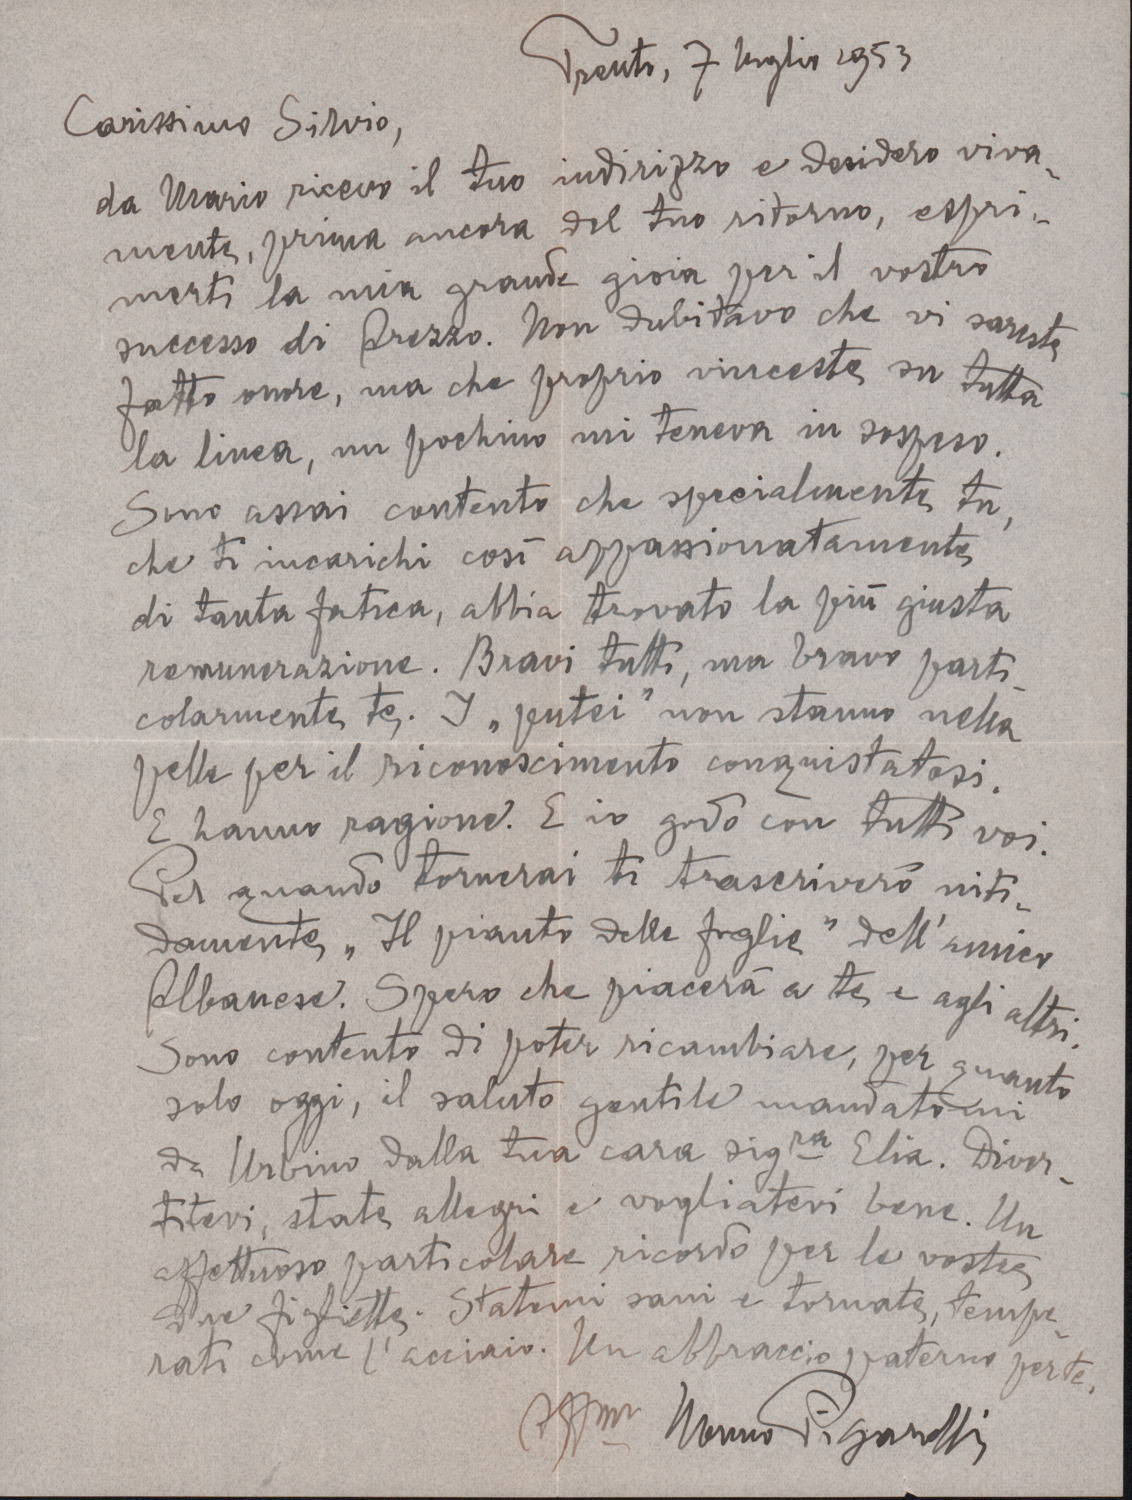 Trento, 7 luglio 1953
Carissimo Silvio,
da Mario ricevo il tuo indirizzo e desidero viva-
mente, prima ancora del tuo ritorno, espri-
merti la mia grande gioia per il vostro
successo di Arezzo. Non dubitavo che vi sareste
fatto onore, ma che proprio vinceste su tutta
la linea, un pochino mi teneva in sospeso.
Sono assai contento che specialmente tu,
che ti incarichi così appassionatamente
di tanta fatica, abbia trovato la più giusta
remunerazione. Bravi tutti, ma bravo parti-
colarmente te. I „putei” non stanno nella
pelle per il riconoscimento conquistatosi.
E hanno ragione. E io godo con tutti voi.
Per quando tornerai ti trascriverò niti-
damente „Il pianto delle foglie” dell'amico
Albanese. Spero che piacerà a te e agli altri.
Sono contento di poter ricambiare, per quanto
solo oggi, il saluto gentile mandatomi
da Urbino dalla tua cara sigra Elia. Diver-
titevi, state allegri e vogliatevi bene. Un
affettuoso particolare ricordo per le vostre
due figliette. Statemi sani e tornate, tempe-
rati come l'acciaio. Un abbraccio paterno per te.
Affmo Nonno Pigarelli